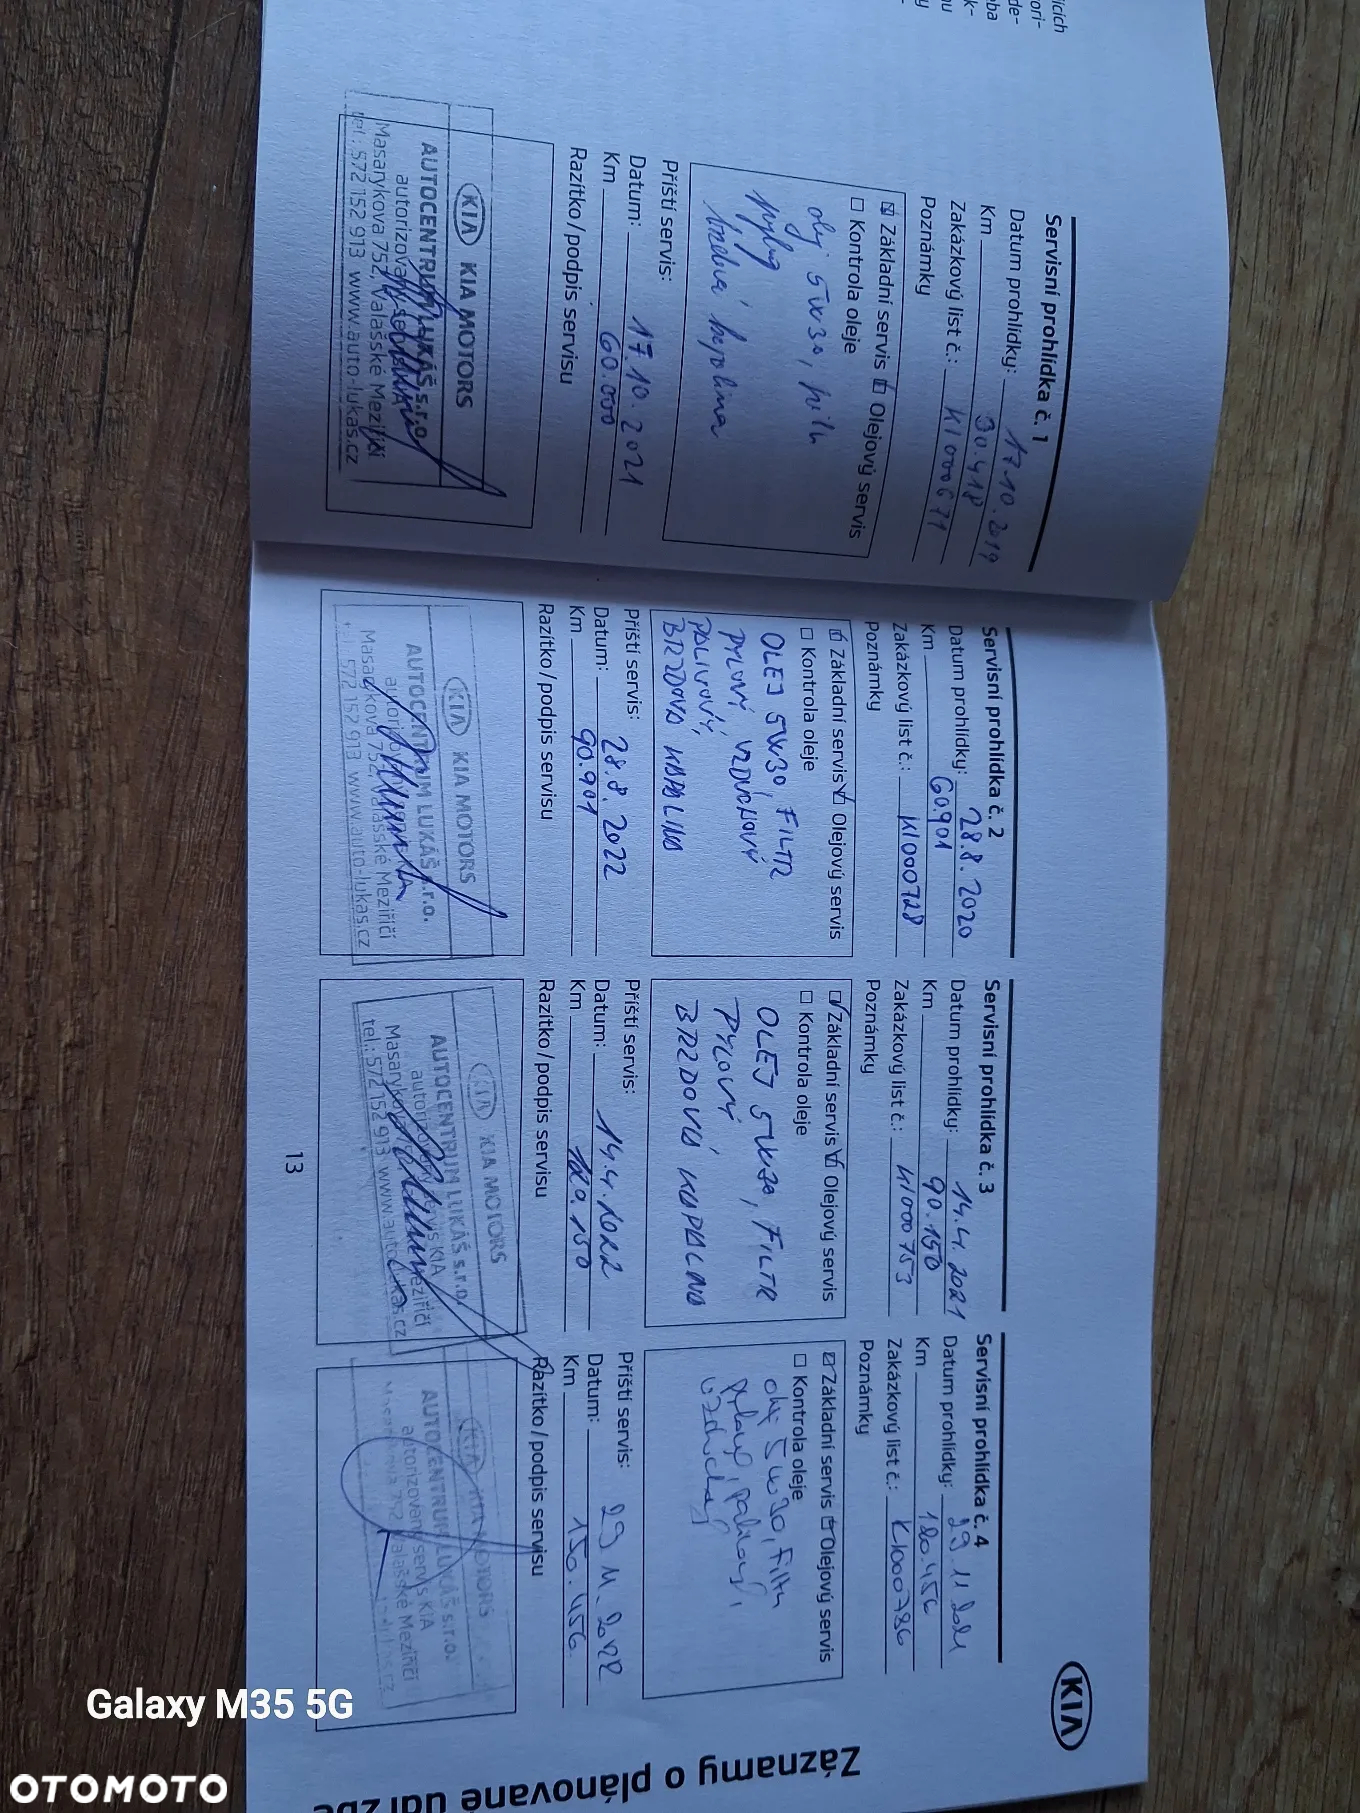 KIA
Záznamy o plánované údržbě
Servisní prohlídka č. 1
Datum prohlídky: 17.10.2019
Km 30.418
Zakázkový list č.: K1000671
Poznámky
Základní servis Olejový servis
Kontrola oleje
olej 5W30, filtr
pylový
brzdová kapalina
Příští servis:
Datum: 17.10.2021
Km 60.000
Razítko/podpis servisu
KIA KIA MOTORS
AUTOCENTRUM LUKÁŠ s.r.o.
autorizovaný servis KIA
Masarykova 752, Valašské Meziříčí
tel.: 572 152 913 www.auto-lukas.cz
Servisní prohlídka č. 2
Datum prohlídky: 28.8.2020
Km 60.901
Zakázkový list č.: K1000728
Poznámky
Základní servis Olejový servis
Kontrola oleje
OLEJ 5W30, FILTR
PYLOVÝ, VZDUCHOVÝ
PALIVOVÝ,
BRZDOVÁ KAPALINA
Příští servis:
Datum: 28.8.2022
Km 90.901
Razítko/podpis servisu
KIA KIA MOTORS
AUTOCENTRUM LUKÁŠ s.r.o.
autorizovaný servis KIA
Masarykova 752, Valašské Meziříčí
572 152 913 www.auto-lukas.cz
Servisní prohlídka č. 3
Datum prohlídky: 14.4.2021
Km 90.150
Zakázkový list č.: K1000753
Poznámky
Základní servis Olejový servis
Kontrola oleje
OLEJ 5W30, FILTR
PYLOVÝ
BRZDOVÁ KAPALINA
Příští servis:
Datum: 14.4.2022
Km 120.150
Razítko/podpis servisu
KIA KIA MOTORS
AUTOCENTRUM LUKÁŠ s.r.o.
autorizovaný servis KIA
Masarykova Meziříčí
tel.: 572 152 913 www.auto-lukas.cz
13
Servisní prohlídka č. 4
Datum prohlídky: 29.11.2021
Km 120.456
Zakázkový list č.: K1000786
Poznámky
Základní servis Olejový servis
Kontrola oleje
olej 5W30, filtr
pylový, palivový,
vzduchový
Příští servis:
Datum: 29.11.2022
Km 150.456
Razítko/podpis servisu
KIA KIA MOTORS
AUTOCENTRUM LUKÁŠ s.r.o.
autorizovaný servis KIA
Masarykova 752, Valašské Meziříčí
Galaxy M35 5G
OTOMOTO